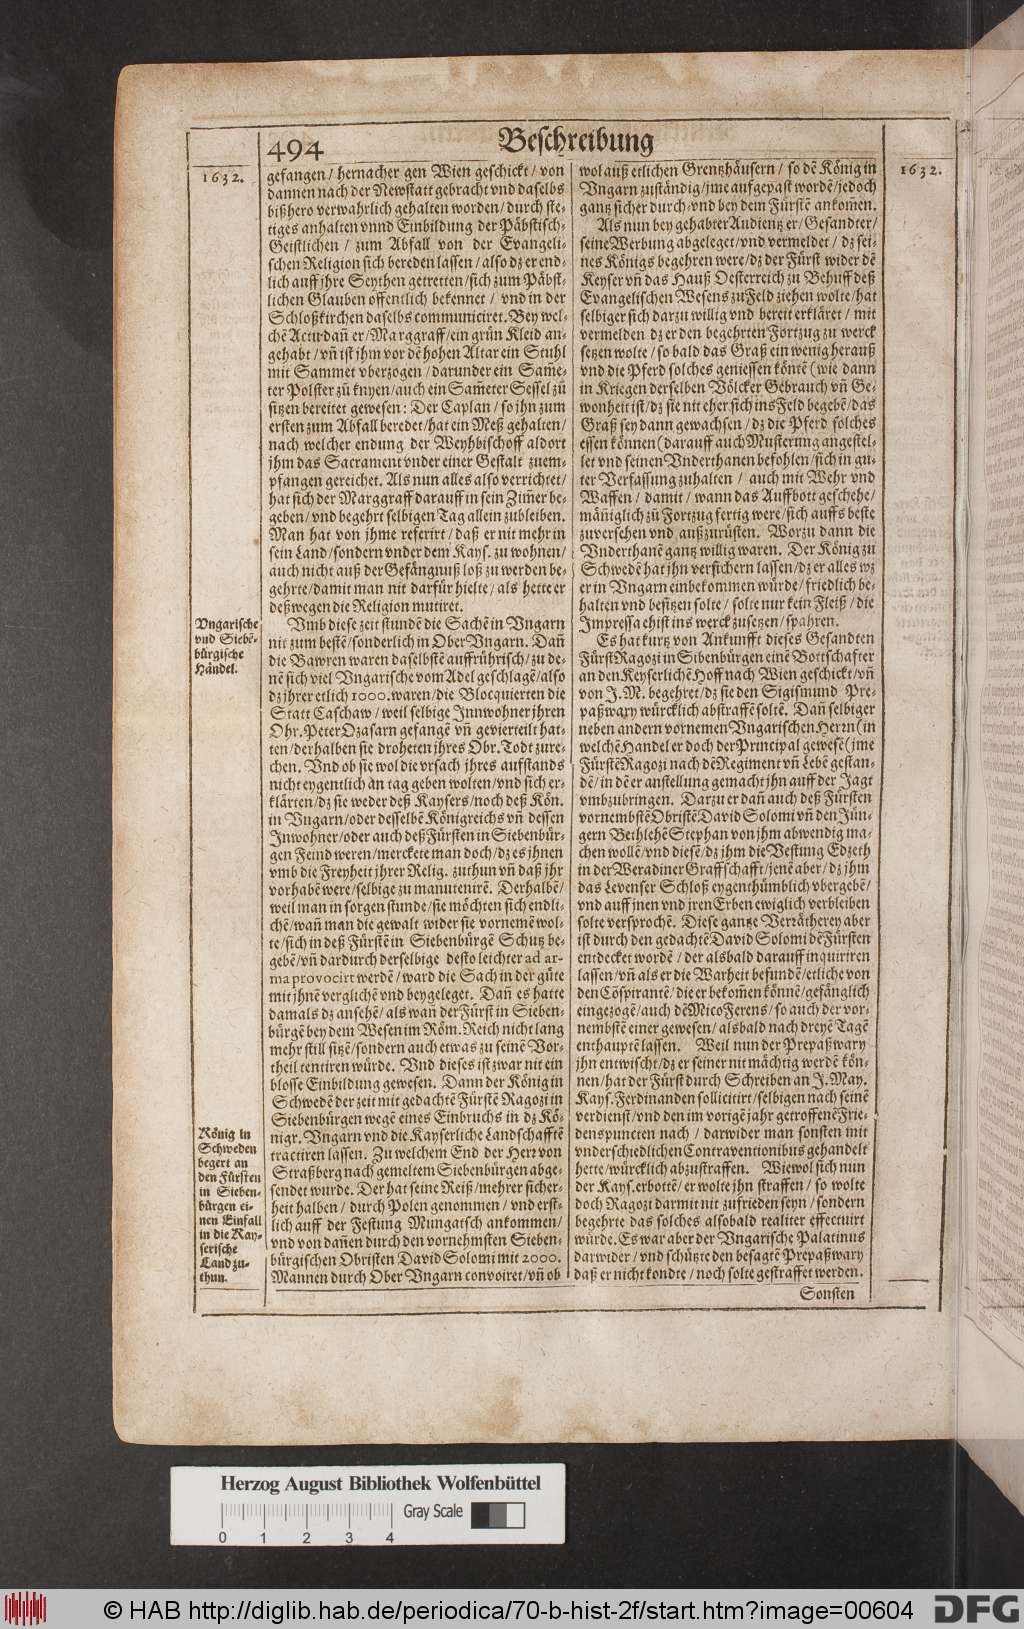 494
Beschreibung
1632.
1632.
gefangen / hernacher gen Wien geschickt / von
dannen nach der Newstatt gebracht vnd daselbs
bißhero verwahrlich gehalten worden / durch ste-
tiges anhalten vnnd Einbildung der Päbstisch-
Geistlichen / zum Abfall von der Evangeli-
schen Religion sich bereden lassen / also dz er end-
lich auff jhre Seythen getretten / sich zum Päbst-
lichen Glauben offentlich bekennet / vnd in der
Schloßkirchen daselbs communiciret. Bey wel-
chẽ Actu dañ er / Marggraff / ein grün Kleid an-
gehabt / vñ ist jhm vor dẽ hohen Altar ein Stuhl
mit Sammet vberzogen / darunder ein Sam̃e-
ter Polster zů knyen / auch ein Sam̃eter Sessel zů
sitzen bereitet gewesen: Der Caplan / so jhn zum
ersten zum Abfall beredet / hat ein Meß gehalten /
nach welcher endung der Weyhbischoff aldort
jhm das Sacrament vnder einer Gestalt zuem-
pfangen gereichet. Als nun alles also verrichtet /
hat sich der Marggraff darauff in sein Zim̃er be-
geben / vnd begehrt selbigen Tag allein zubleiben.
Man hat von jhme referirt / daß er nit mehr in
sein Land / sondern vnder dem Kays. zu wohnen /
auch nicht auß der Gefängnuß loß zu werden be-
gehrte / damit man nit darfür hielte / als hette er
deßwegen die Religion mutiret.
Vngarische
vnd Siebẽ-
bürgische
Händel.
Vmb diese zeit stundẽ die Sachẽ in Vngarn
nit zum bestẽ / sonderlich in Ober Vngarn. Dañ
die Bawren waren daselbstẽ auffrührisch / zu de-
nẽ sich viel Vngarische vom Adel geschlagẽ / also
dz jhrer etlich 1000. waren / die Blocquierten die
Statt Caschaw / weil selbige Innwohner jhren
Obr. Peter Ozasarn gefangẽ vñ gevierteilt hat-
ten / derhalben sie droheten jhres Obr. Todt zure-
chen. Vnd ob sie wol die vrsach jhres auffstands
nicht eygentlich an tag geben wolten / vnd sich er-
klärten / dz sie weder deß Kaysers / noch deß Kön.
in Vngarn / oder desselbẽ Königreichs vñ dessen
Inwohner / oder auch deß Fürsten in Siebenbür-
gen Feind weren / merckete man doch / dz es jhnen
vmb die Freyheit jhrer Relig. zuthun vñ daß jhr
vorhabẽ were / selbige zu manutenirẽ. Derhalbẽ /
weil man in sorgen stunde / sie möchten sich endli-
chẽ / wañ man die gewalt wider sie vornemẽ wol-
te / sich in deß Fürstẽ in Siebenbürgẽ Schutz be-
gebẽ / vñ dardurch derselbige desto leichter ad ar-
ma provocirt werdẽ / ward die Sach in der güte
mit jhnẽ verglichẽ vnd beygeleget. Dañ es hatte
damals dz ansehẽ / als wañ der Fürst in Sieben-
bürgẽ bey dem Wesen im Röm. Reich nicht lang
mehr still sitzẽ / sondern auch etwas zu seinẽ Vor-
theil tentiren würde. Vnd dieses ist zwar nit ein
blosse Einbildung gewesen. Dann der König in
Schwedẽ der zeit mit gedachtẽ Fürstẽ Ragozi in
Siebenbürgen wegẽ eines Einbruchs in dz Kö-
nigr. Vngarn vnd die Kayserliche Landschafftẽ
tractiren lassen. Zu welchem End der Herz von
Straßberg nach gemeltem Siebenbürgen abge-
sendet wurde. Der hat seine Reiß / mehrer sicher-
heit halben / durch Polen genommen / vnd erst-
lich auff der Festung Mungatsch ankommen /
vnd von dañen durch den vornehmsten Sieben-
bürgischen Obristen David Solomi mit 2000.
Mannen durch Ober Vngarn convoiret / vñ ob
König in
Schweden
begert an
den Fürsten
in Sieben-
bürgen ei-
nen Einfall
in die Kay-
serische
Land zu-
thun.
wol auß etlichen Grentzhäusern / so dẽ König in
Vngarn zuständig / jme auffgepast wordẽ / jedoch
gantz sicher durch / vnd bey dem Fürstẽ ankom̃en.
Als nun bey gehabter Audientz er / Gesandter /
seine Werbung abgeleget / vnd vermeldet / dz sei-
nes Königs begehren were / dz der Fürst wider dẽ
Keyser vñ das Hauß Oesterreich zu Behuff deß
Evangelischen Wesens zu Feld ziehen wolte / hat
selbiger sich darzu willig vnd bereit erkläret / mit
vermelden dz er den begehrten Fortzug zu werck
setzen wolte / so bald das Graß ein wenig herauß
vnd die Pferd solches geniessen köntẽ (wie dann
in Kriegen derselben Völcker Gebrauch vñ Ge-
wonheit ist / dz sie nit eher sich ins Feld begebẽ / das
Graß sey dann gewachsen / dz die Pferd solches
essen können (darauff auch Musterung angestel-
let vnd seinen Vnderthanen befohlen / sich in gu-
ter Verfassung zuhalten / auch mit Wehr vnd
Waffen / damit / wann das Auffbott geschehe /
mäñiglich zů Fortzug fertig were / sich auffs beste
zuversehen vnd außzurüsten. Worzu dann die
Vnderthanẽ gantz willig waren. Der König zu
Schwedẽ hat jhn versichern lassen / dz er alles wz
er in Vngarn einbekommen würde / friedlich be-
halten vnd besitzen solte / solte nur kein Fleiß / die
Impressa ehist ins werck zusetzen / spahren.
Es hat kurtz von Ankunfft dieses Gesandten
Fürst Ragozi in Sibenbürgen einẽ Bottschafter
an den Keyserlichẽ Hoff nach Wien geschickt / vñ
von J. M. begehret / dz sie den Sigismund Pre-
paßwary würcklich abstraffẽ soltẽ. Dañ selbiger
neben andern vornemen Vngarischen Herzn (in
welchẽ Handel er doch der Principal gewesẽ (jme
Fürstẽ Ragozi nach dẽ Regiment vñ Lebẽ gestan-
dẽ / in dẽ er anstellung gemacht jhn auff der Jagt
vmbzubringen. Darzu er dañ auch deß Fürsten
vornembstẽ Obristẽ David Solomi vñ den Jün-
gern Bethlehẽ Stephan von jhm abwendig ma-
chen wollẽ / vnd diesẽ / dz jhm die Vestung Edzeth
in der Weradiner Graffschafft / jenẽ aber / dz jhm
das Levenser Schloß eygenthümblich vbergebẽ /
vnd auff jnen vnd jren Erben ewiglich verbleiben
solte versprochẽ. Diese gantze Verrätherey aber
ist durch den gedachtẽ David Solomi dẽ Fürsten
entdecket wordẽ / der alsbald darauff inquiriren
lassen / vñ als er die Warheit befundẽ / etliche von
den Cõspirantẽ / die er bekom̃en könnẽ / gefänglich
eingezogẽ / auch dẽ Mico Ferens / so auch der vor-
nembstẽ einer gewesen / alsbald nach dreyẽ Tagẽ
enthauptẽ lassen. Weil nun der Prepaßwary
jhn entwischt / dz er seiner nit mächtig werdẽ kön-
nen / hat der Fürst durch Schreiben an J. May.
Kays. Ferdinanden sollicitirt / selbigen nach seinẽ
verdienst / vnd den im vorigẽ jahr getroffenẽ Frie-
denspuncten nach / darwider man sonsten mit
vnderschiedlichen Contraventionibus gehandelt
hette / würcklich abzustraffen. Wiewol sich nun
der Kays. erbottẽ / er wolte jhn straffen / so wolte
doch Ragozi darmit nit zufrieden seyn / sondern
begehrte das solches alsobald realiter effectuirt
würde. Es war aber der Vngarische Palatinus
darwider / vnd schützte den besagtẽ Prepaßwary
daß er nicht kondte / noch solte gestraffet werden.
Sonsten
Herzog August Bibliothek Wolfenbüttel
0 1 2 3 4
Gray Scale
© HAB http://diglib.hab.de/periodica/70-b-hist-2f/start.htm?image=00604
DFG